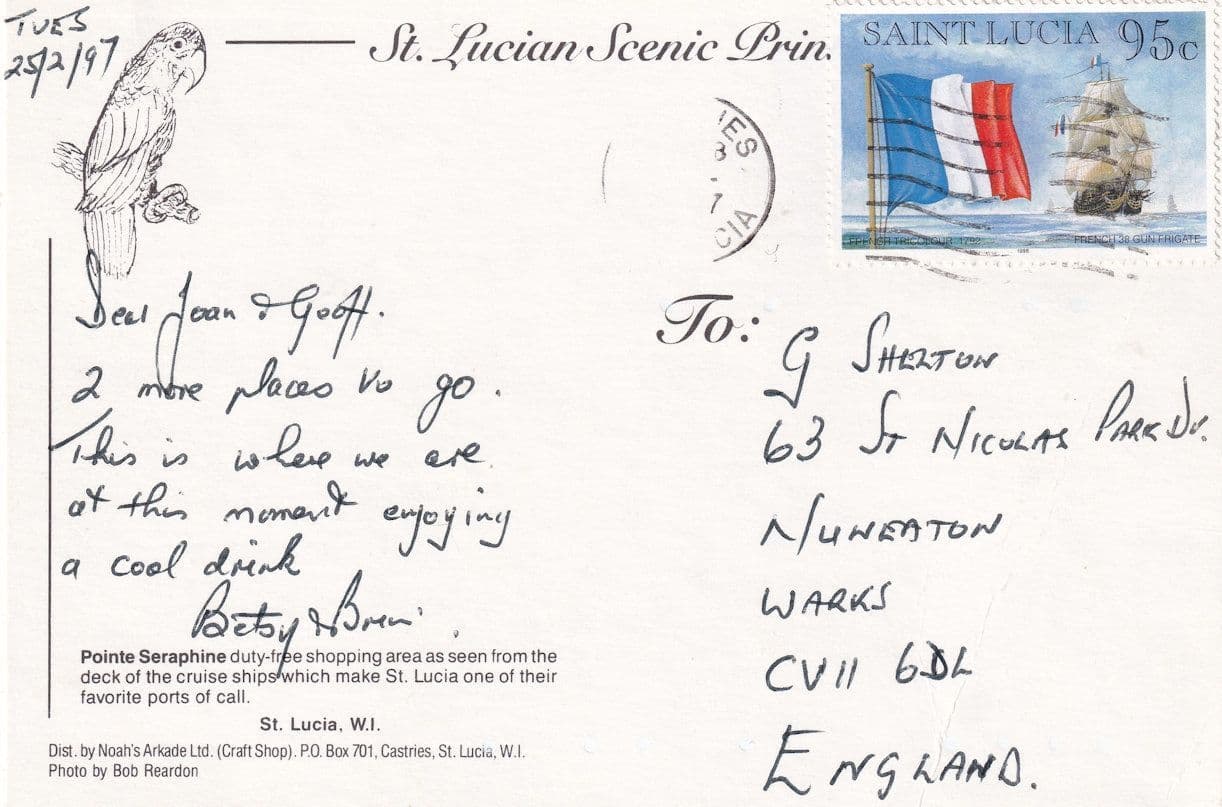 TUES
25/2/97
St. Lucian Scenic Prin
SAINT LUCIA 95c
FRENCH TRICOLOUR, 1792
1996
FRENCH 38 GUN FRIGATE
IES
8
7
CIA
Dear Joan & Geoff.
2 more places to go.
This is where we are
at this moment enjoying
a cool drink
Betsy &
Pointe Seraphine duty-free shopping area as seen from the
deck of the cruise ships which make St. Lucia one of their
favorite ports of call.
St. Lucia, W.I.
Dist. by Noah's Arkade Ltd. (Craft Shop). P.O. Box 701, Castries, St. Lucia, W.I.
Photo by Bob Reardon
To:
G SHELTON
63 ST NICOLAS PARK DV.
NUNEATON
WARKS
CV11 6DL
ENGLAND.